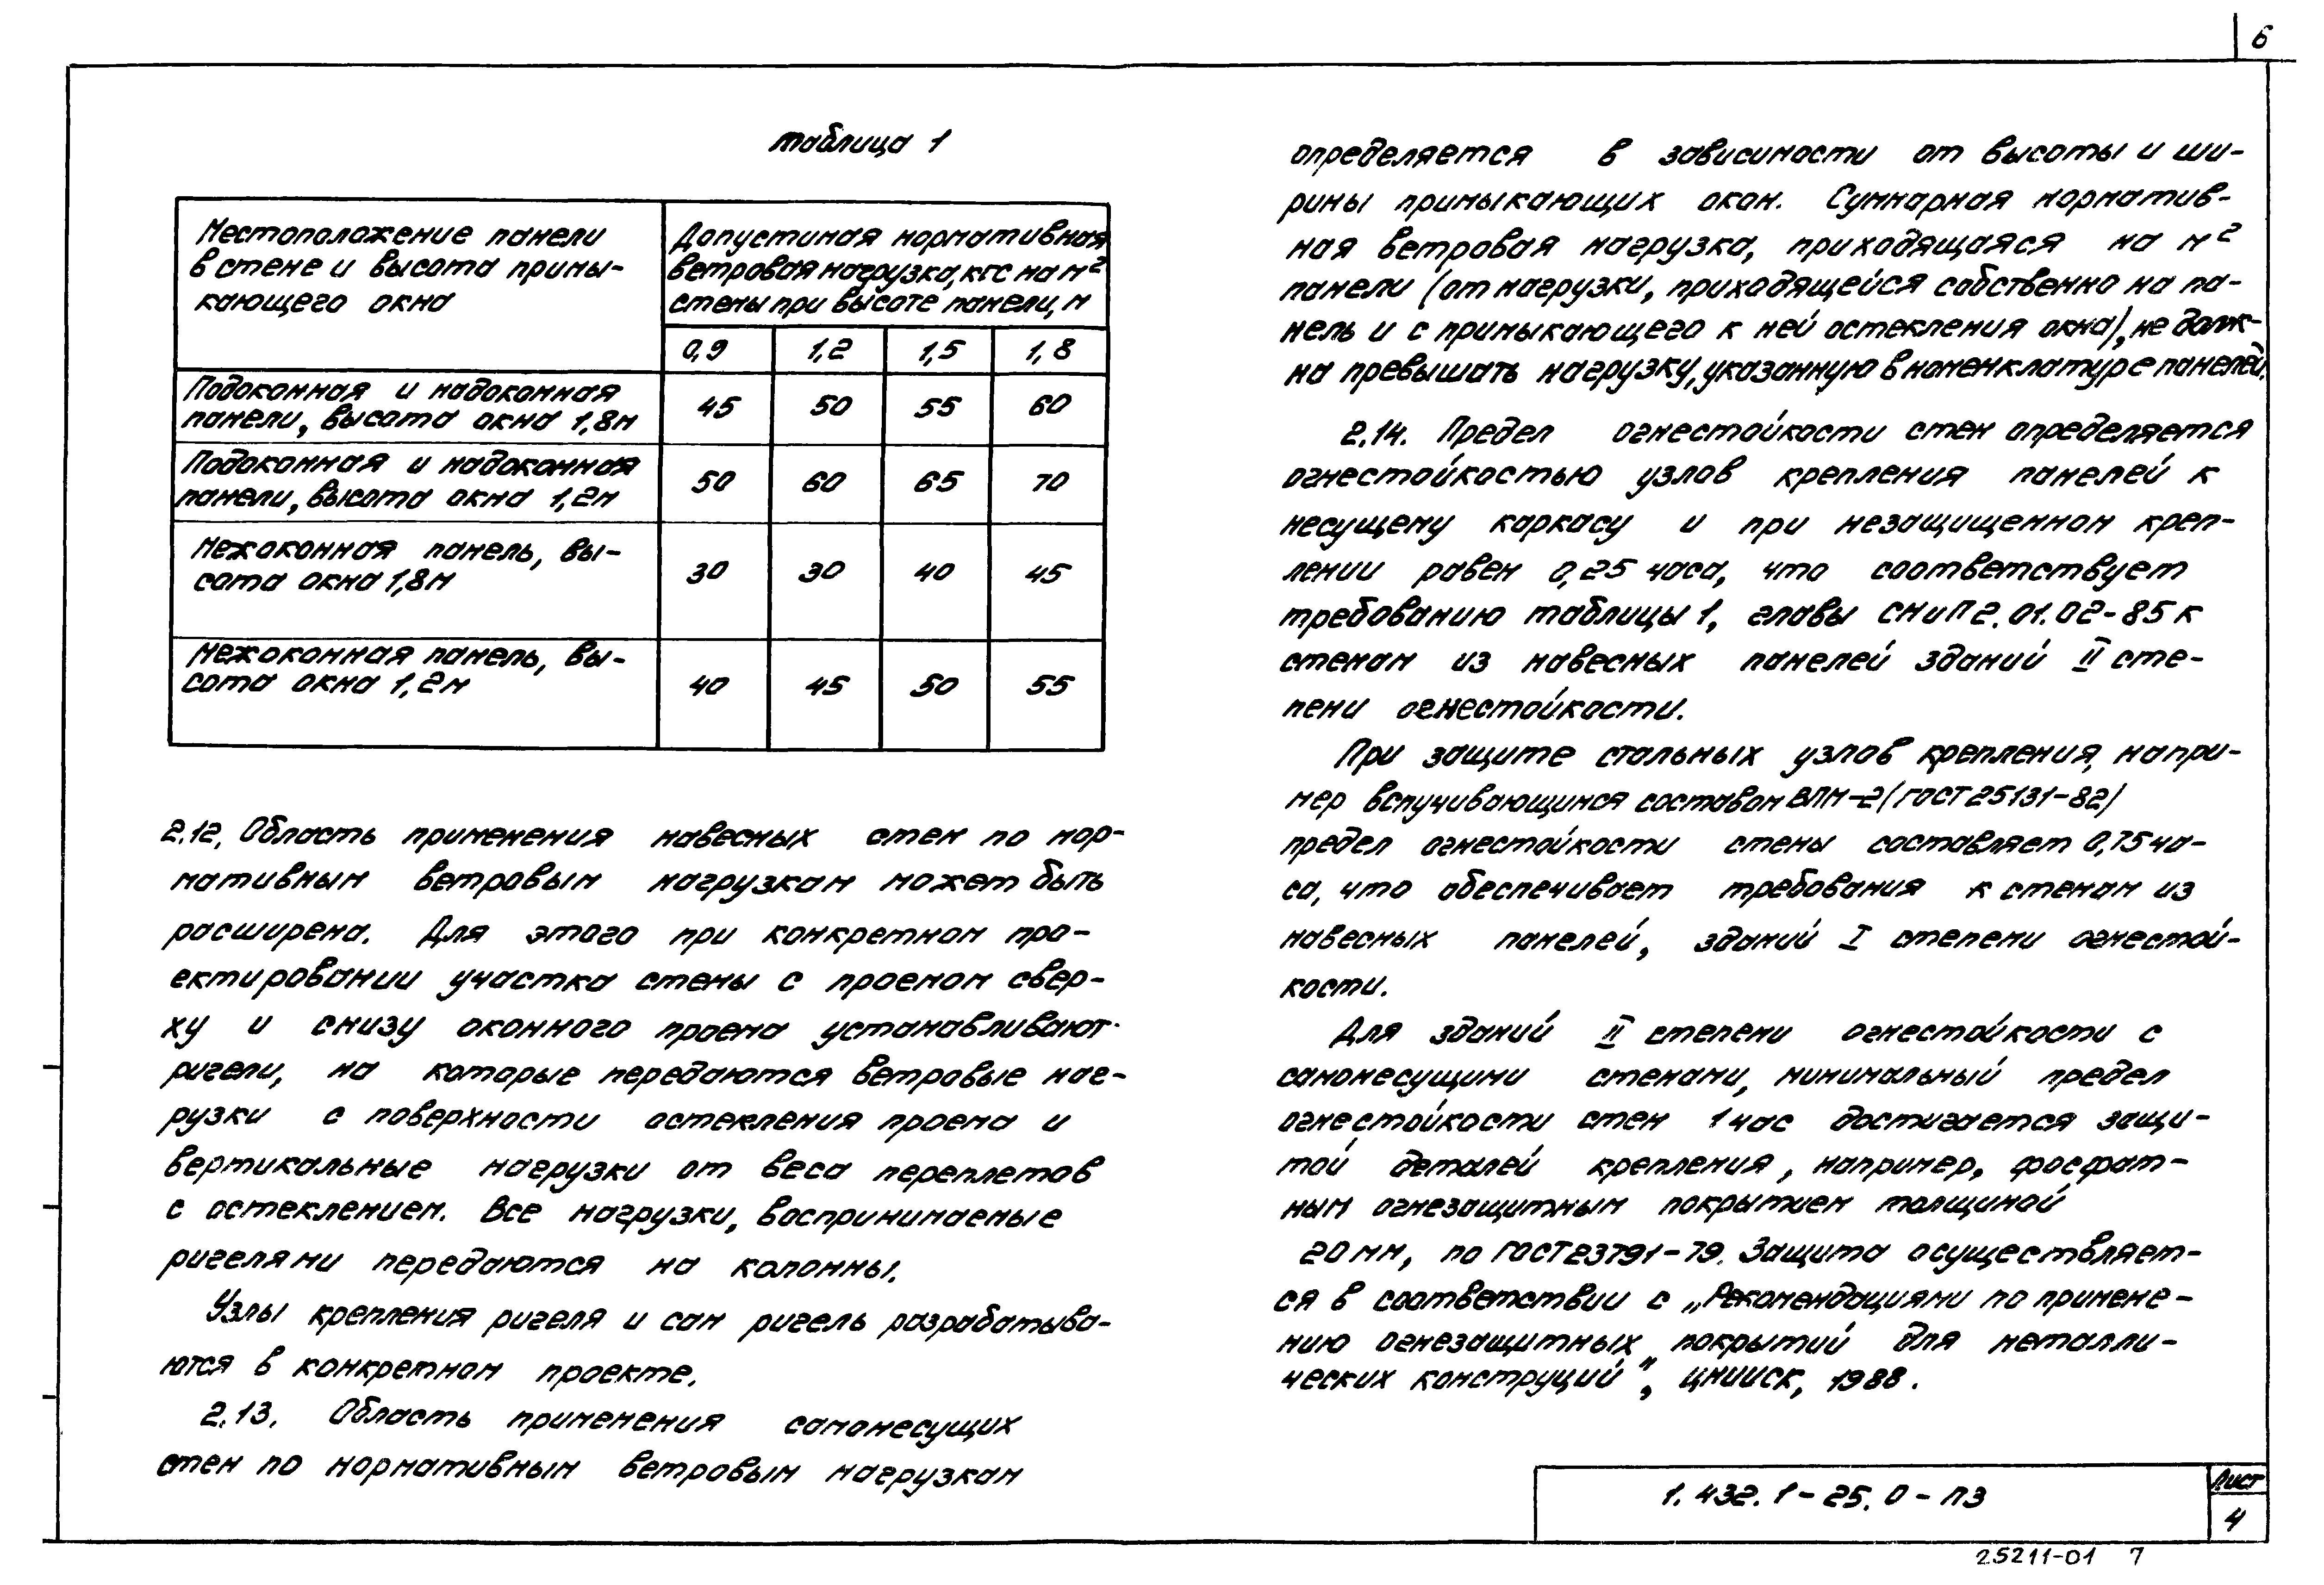 6
таблица 1
Местоположение панели
в стене и высота примы-
кающего окна
Допустимая нормативная
ветровая нагрузка, кгс на м²
стены при высоте панели, м
0,9 1,2 1,5 1,8
Подоконная и надоконная
панели, высота окна 1,8м
45 50 55 60
Подоконная и надоконная
панели, высота окна 1,2м
50 60 65 70
Межоконная панель, вы-
сота окна 1,8м
30 30 40 45
Межоконная панель, вы-
сота окна 1,2м
40 45 50 55
2.12. Область применения навесных стен по нор-
мативным ветровым нагрузкам может быть
расширена. Для этого при конкретном про-
ектировании участка стены с проемом свер-
ху и снизу оконного проема устанавливают
ригели, на которые передаются ветровые наг-
рузки с поверхности остекления проема и
вертикальные нагрузки от веса переплетов
с остеклением. Все нагрузки, воспринимаемые
ригелями передаются на колонны.
Узлы крепления ригеля и сам ригель разрабатыва-
ются в конкретном проекте.
2.13. Область применения самонесущих
стен по нормативным ветровым нагрузкам
определяется в зависимости от высоты и ши-
рины примыкающих окон. Суммарная норматив-
ная ветровая нагрузка, приходящаяся на м²
панели (от нагрузки, приходящейся собственно на па-
нель и с примыкающего к ней остекления окна), не долж-
на превышать нагрузку, указанную в номенклатуре панелей.
2.14. Предел огнестойкости стен определяется
огнестойкостью узлов крепления панелей к
несущему каркасу и при незащищенном креп-
лении равен 0,25 часа, что соответствует
требованию таблицы 1, главы СНиП 2.01.02-85 к
стенам из навесных панелей зданий II сте-
пени огнестойкости.
При защите стальных узлов крепления, напри-
мер вспучивающимся составом ВПМ-2 (ГОСТ 25131-82)
предел огнестойкости стены составляет 0,75 ча-
са, что обеспечивает требования к стенам из
навесных панелей, зданий I степени огнестой-
кости.
Для зданий II степени огнестойкости с
самонесущими стенами, минимальный предел
огнестойкости стен 1 час достигается защи-
той деталей крепления, например, фосфат-
ным огнезащитным покрытием толщиной
20 мм, по ГОСТ 23791-79. Защита осуществляет-
ся в соответствии с „Рекомендациями по примене-
нию огнезащитных покрытий для металли-
ческих конструций", ЦНИИСК, 1988.
1.432.1-25.0-ПЗ
Лист
4
25211-01 7